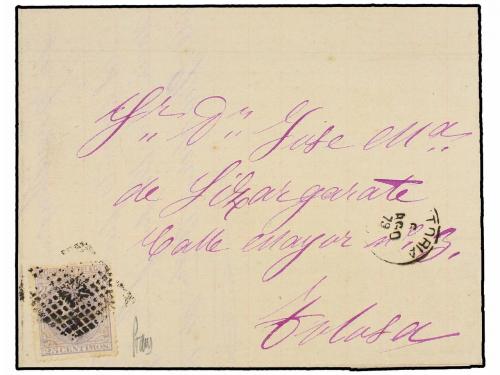 Sr. Dn. Jose Ma.
de Lizargarate
Calle Mayor nº 3.
Tolosa
TORIA
AGO
79
25 CENTIMOS